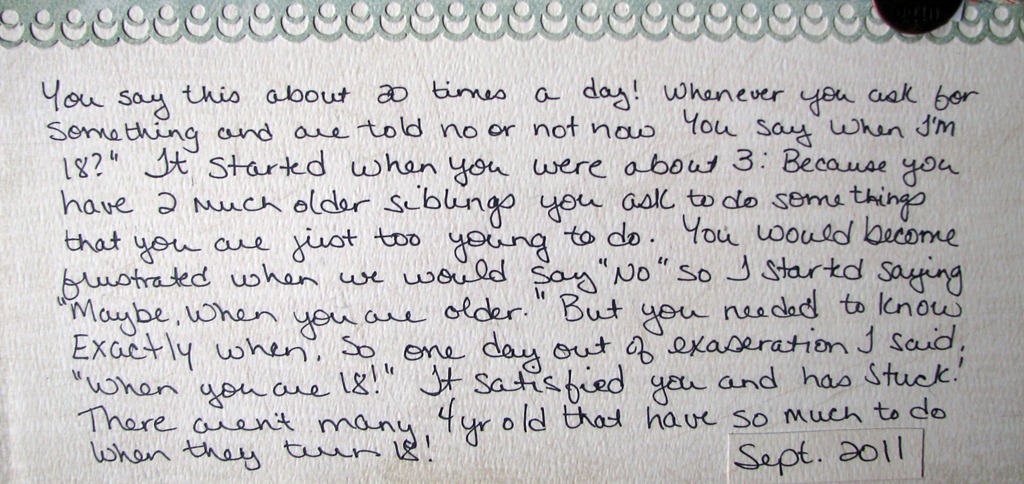 You say this about 20 times a day! Whenever you ask for
something and are told no or not now You say when I'm
18?" It started when you were about 3: Because you
have 2 much older siblings you ask to do some things
that you are just too young to do. You would become
frustrated when we would say "No" so I started saying
"Maybe, when you are older." But you needed to know
Exactly when. So one day out of exaseration I said,
"when you are 18!" It satisfied you and has stuck!
There aren't many 4 yr old that have so much to do
when they turn 18!
Sept. 2011